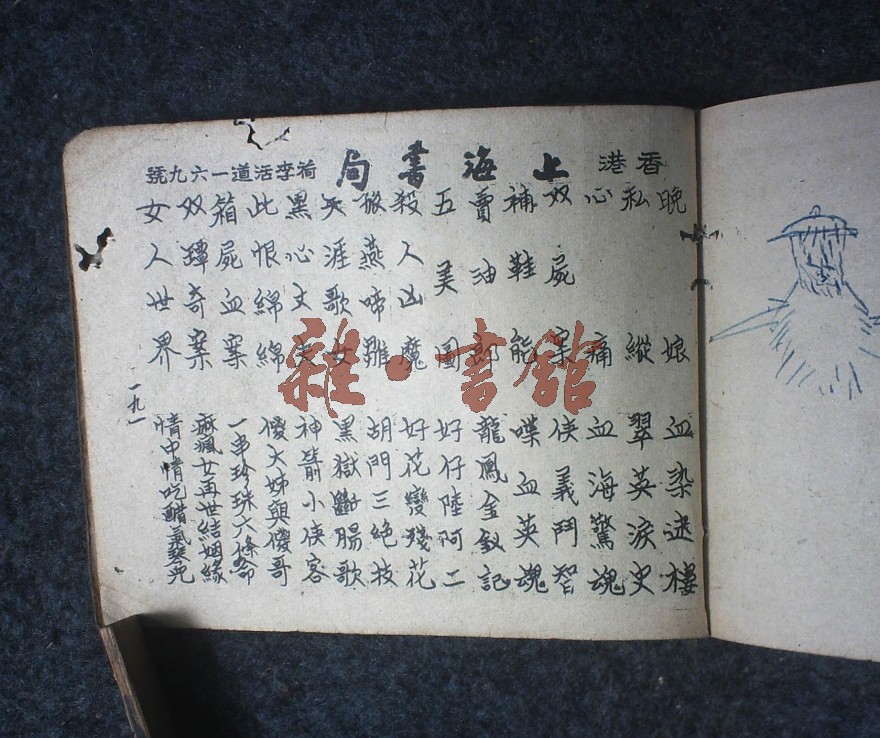 香港 上海書局 荷李活道一六九號
晚娘
私縱
心痛
双屍案
補鞋能
賣油郎
五美圖
殺人凶魔
燕啼雛
天涯歌女
黑心丈夫
此恨綿綿
箱屍血案
双奇案
女人世界
血染迷樓
翠英淚史
血海驚魂
俠義鬥智
喋血英魂
龍鳳金釵記
好仔陸阿二
好花變殘花
胡門三絕技
黑獄斷腸歌
神箭小俠客
傻大姊與傻哥
一串珍珠六條命
痳瘋女再世結姻緣
情中情吃醋氣
一九一
雜·書館